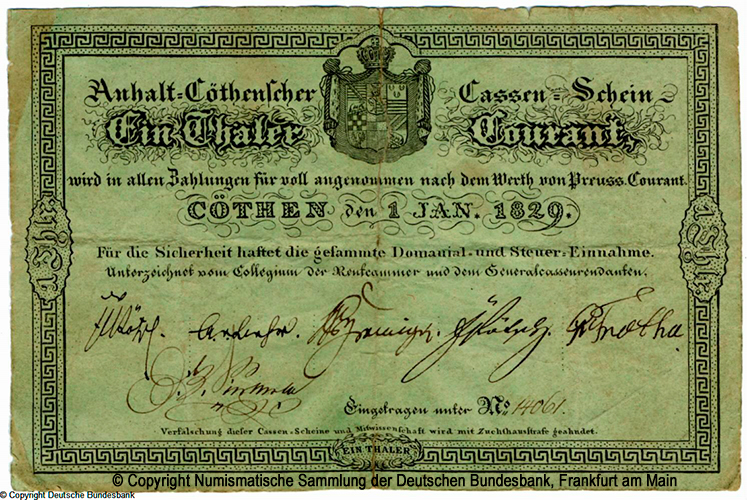 Anhalt=Cöthenscher Cassen=Schein=
Ein Thaler Courant,
wird in allen Zahlungen für voll angenommen nach dem Werth von Preuss. Courant.
CÖTHEN den 1 JAN. 1829.
1 Thlr. 1 Thlr.
Für die Sicherheit haftet die gesammte Domanial- und Steuer=Einnahme.
Unterzeichnet vom Collegium der Rentcammer und dem Generalcassenrendanten.
Eingetragen unter No. 14061.
Verfälschung dieser Cassen=Scheine und Mitwissenschaft wird mit Zuchthausstrafe geahndet.
EIN THALER
© Copyright Numismatische Sammlung der Deutschen Bundesbank, Frankfurt am Main
© Copyright Deutsche Bundesbank